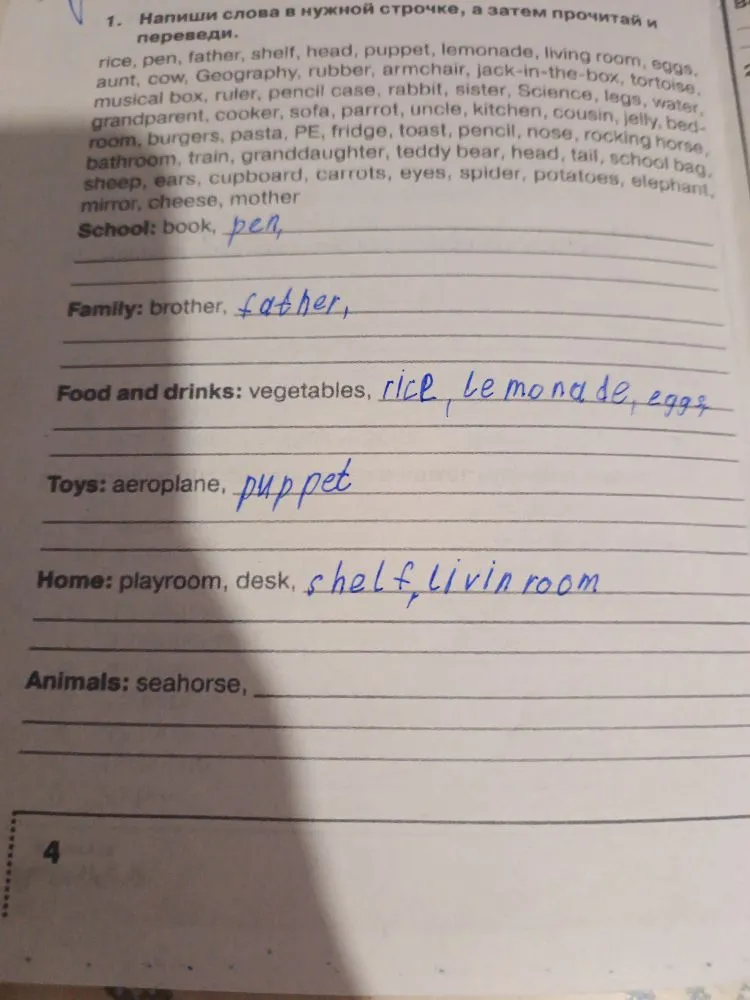 1. Напиши слова в нужной строчке, а затем прочитай и
переведи.
rice, pen, father, shelf, head, puppet, lemonade, living room, eggs,
aunt, cow, Geography, rubber, armchair, jack-in-the-box, tortoise,
musical box, ruler, pencil case, rabbit, sister, Science, legs, water,
grandparent, cooker, sofa, parrot, uncle, kitchen, cousin, jelly, bed-
room, burgers, pasta, PE, fridge, toast, pencil, nose, rocking horse,
bathroom, train, granddaughter, teddy bear, head, tail, school bag,
sheep, ears, cupboard, carrots, eyes, spider, potatoes, elephant,
mirror, cheese, mother
School: book, pen,
Family: brother, father,
Food and drinks: vegetables, rice, lemonade, eggs,
Toys: aeroplane, puppet
Home: playroom, desk, shelf, livin room
Animals: seahorse,
4